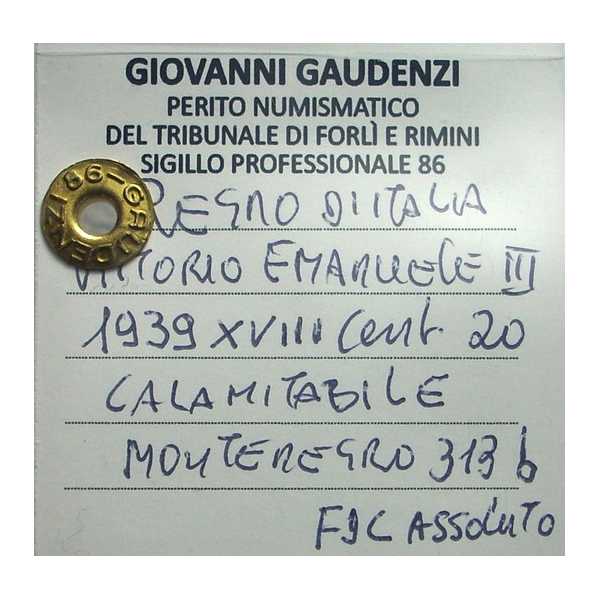 GIOVANNI GAUDENZI
PERITO NUMISMATICO
DEL TRIBUNALE DI FORLÌ E RIMINI
SIGILLO PROFESSIONALE 86
86-GAUDENZI
REGNO DI ITALIA
VITTORIO EMANUELE III
1939 XVIII Cent. 20
CALAMITABILE
MONTENEGRO 313 b
FDC ASSOLUTO